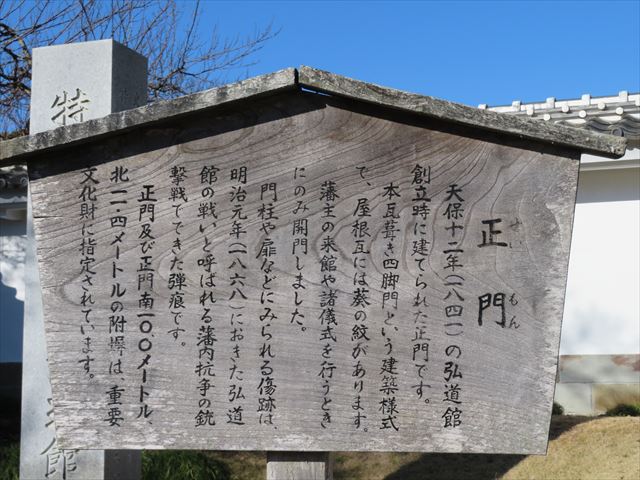 正門
せいもん
天保十二年(一八四一)の弘道館
創立時に建てられた正門です。
本瓦葺き四脚門という建築様式
で、屋根瓦には葵の紋があります。
藩主の来館や諸儀式を行うとき
にのみ開門しました。
門柱や扉などにみられる傷跡は、
明治元年(一八六八)におきた弘道
館の戦いと呼ばれる藩内抗争の銃
撃戦でできた弾痕です。
正門及び正門南一〇.〇メートル、
北一一.四メートルの附塀は重要
文化財に指定されています。
特
館